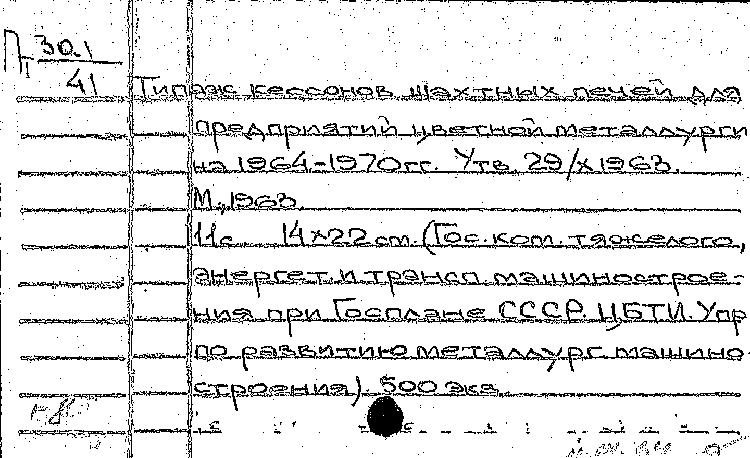 П 30.1
41
Типаж кессонов шахтных печей для
предприятий цветной металлурги
на 1964-1970 гг. Утв. 29/X 1963.
М., 1963.
11с. 14x22 см. (Гос. ком. тяжелого,
энергет. и трансп. машинострое-
ния при Госплане СССР. ЦБТИ. Упр
по развитию металлург. машино
строения). 500 экз.